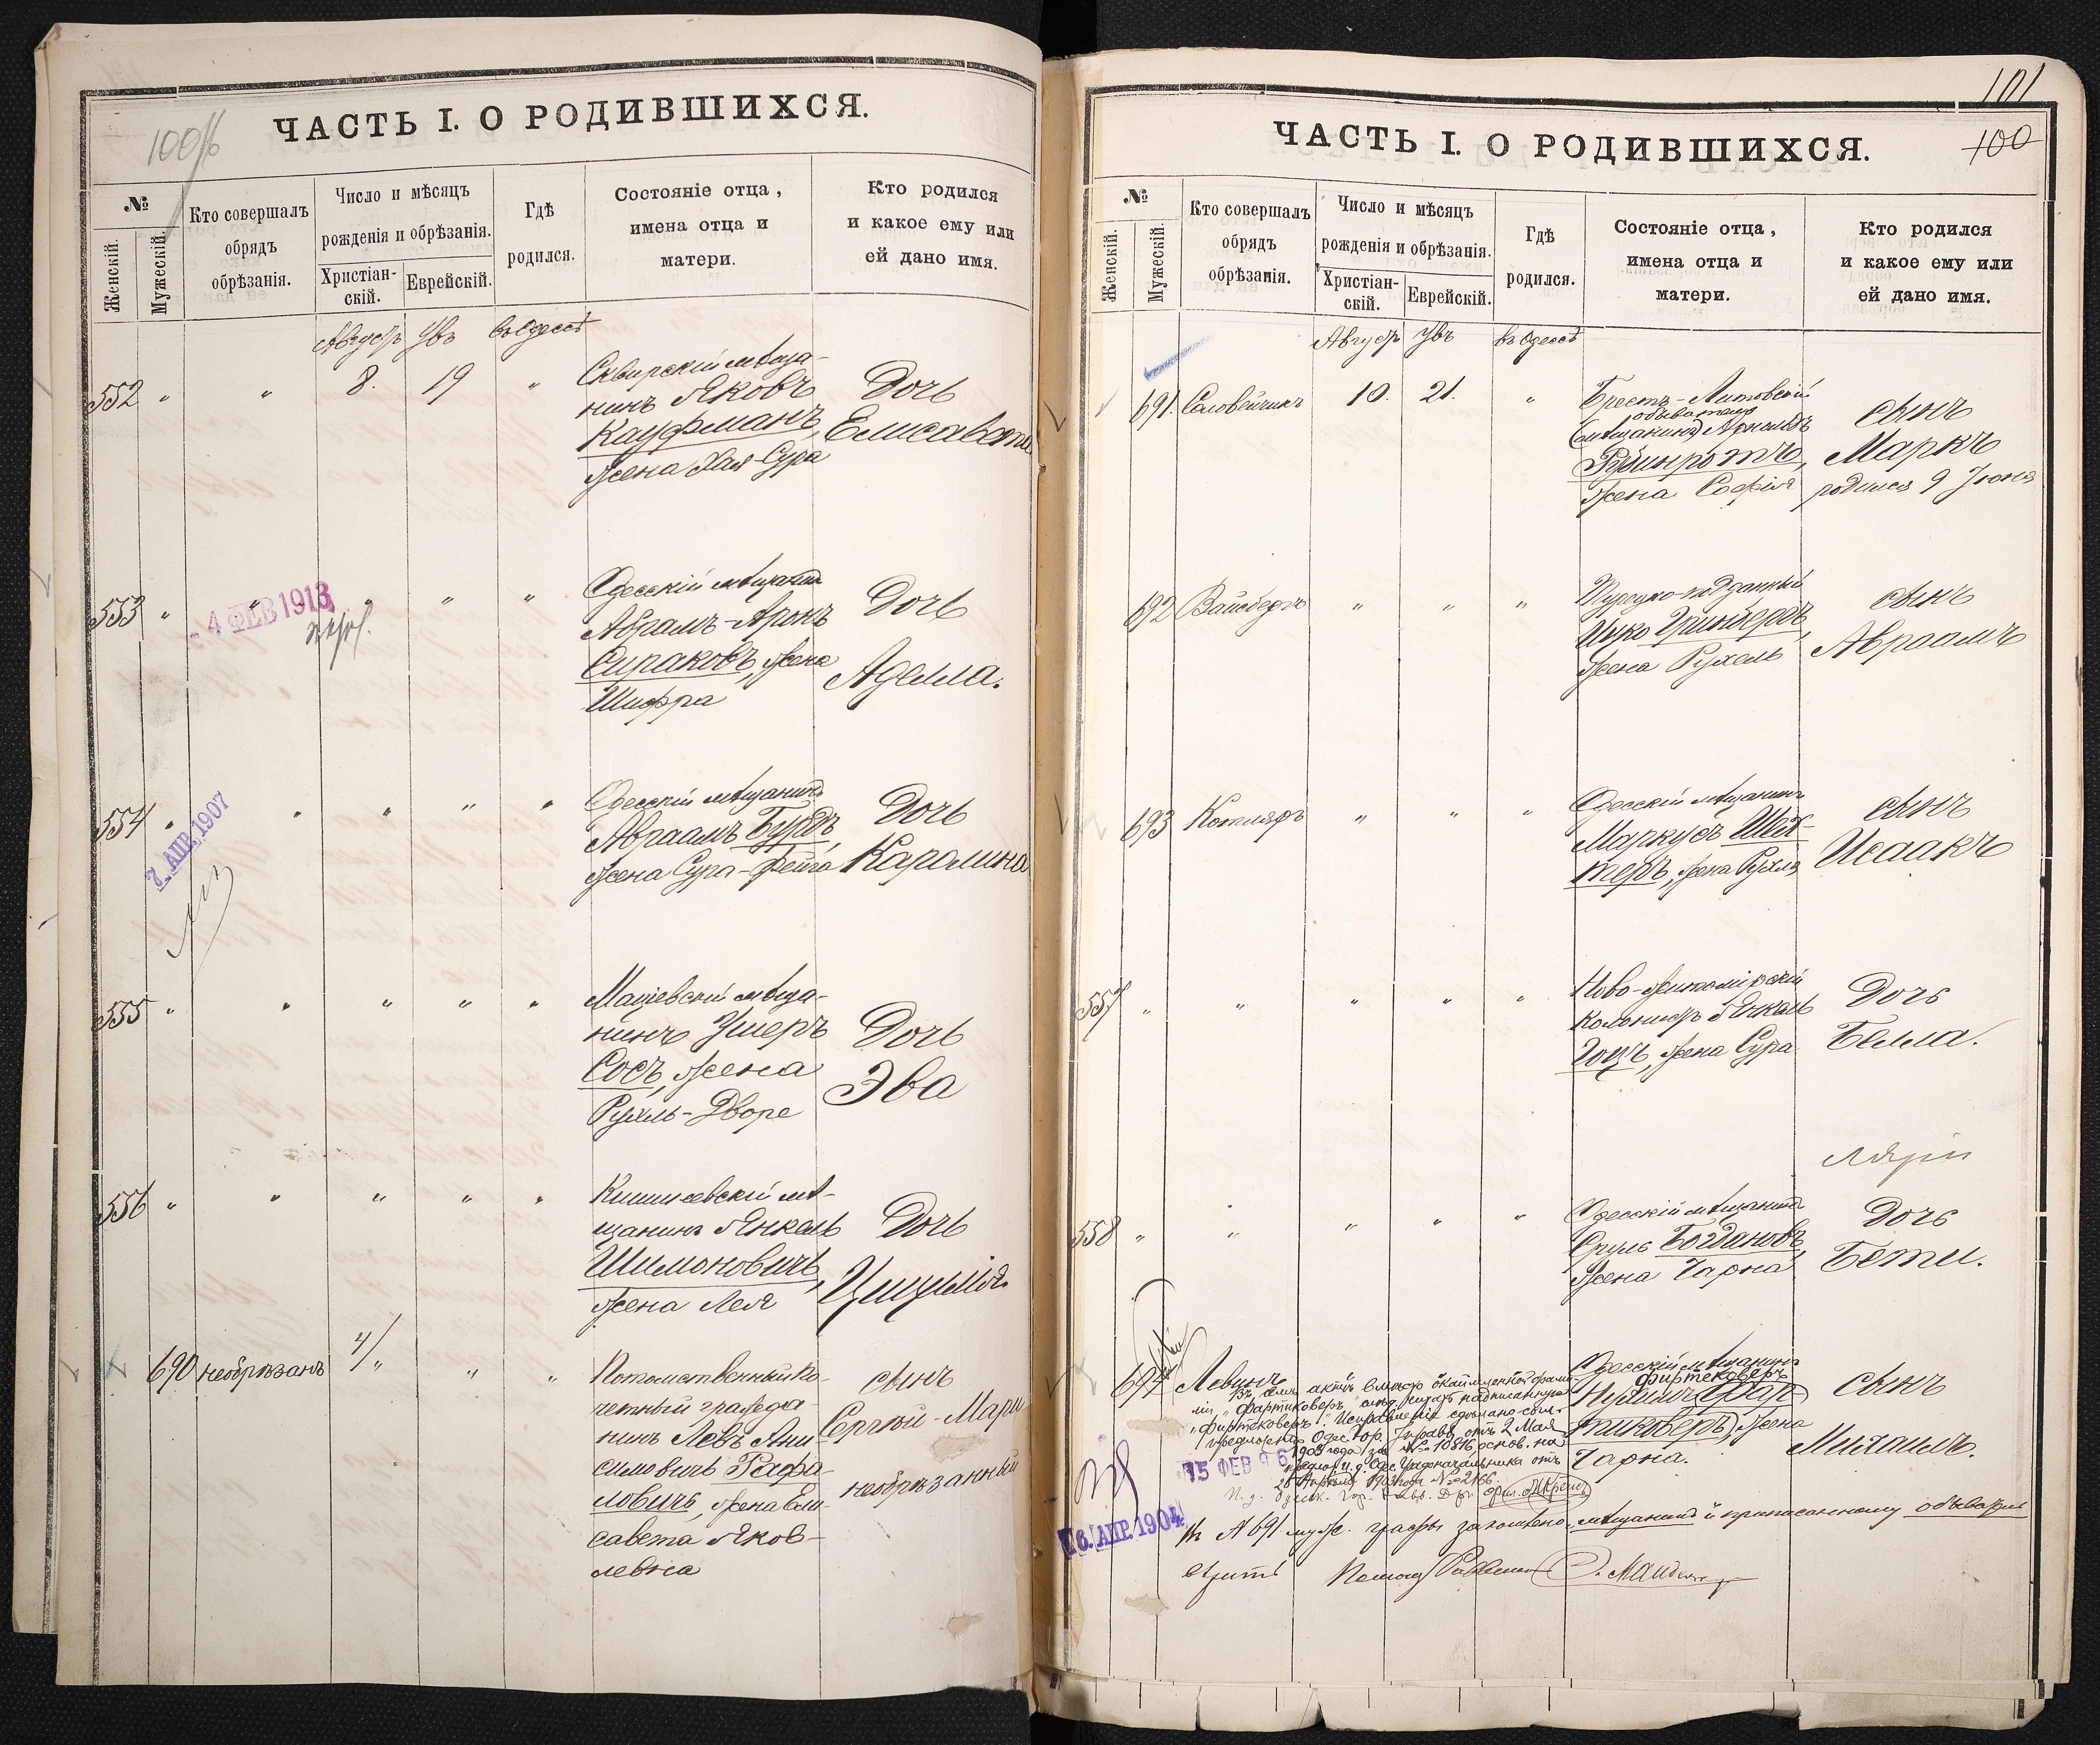 100
ЧАСТЬ I. О РОДИВШИХСЯ.
№
Женскій.
Мужескій.
Кто совершалъ
обрядъ
обрѣзанія.
Число и мѣсяцъ
рожденія и обрѣзанія.
Христіан-
скій.
Еврейскій.
Гдѣ
родился.
Состояніе отца,
имена отца и
матери.
Кто родился
и какое ему или
ей дано имя.
Августъ
въ Одессѣ
552 " " 8. 19 "
Сквирскій мѣща-
нинъ Яковъ
Кауфманъ,
жена Хая Сура
Дочь
Елисавета
553 " " " " "
- 4 ФЕВ 1913
Одесскій мѣщанинъ
Абрамъ-Аронъ
Сираковъ, жена
Шифра
Дочь
Аделла.
554 " " " " "
7. АПР. 1907
Одесскій мѣщанинъ
Авраамъ
жена Сура-Фейга
Дочь
Каралина
555 " " " " "
Маціевскій мѣща-
нинъ Ушеръ
Сосъ, жена
Рухль-Дворе
Дочь
Эва
556 " " " " "
Кишиневскій мѣ-
щанинъ Янкель
Шимоновичъ,
жена Лея
Дочь
Цицилія.
690 необрѣзанъ 4/" " "
Потомственный по-
четный гражда-
нинъ Левъ Ани-
симовичъ Рафа-
ловичъ, жена Ели-
савета Яков-
левна
сынъ
Сергѣй-Марк
необрѣзанный
101
100
ЧАСТЬ I. О РОДИВШИХСЯ.
№
Женскій.
Мужескій.
Кто совершалъ
обрядъ
обрѣзанія.
Число и мѣсяцъ
рожденія и обрѣзанія.
Христіан-
скій.
Еврейскій.
Гдѣ
родился.
Состояніе отца,
имена отца и
матери.
Кто родился
и какое ему или
ей дано имя.
Августъ
въ Одессѣ
691. Соловейчикъ 10. 21. "
Брестъ-Литовскій
обыватель
(мѣщанинъ) Арнольдъ
Рубинротъ,
жена Софія
сынъ
Маркъ
родился 9 Іюня
692 Вайсбергъ " " "
Турецко-подданный
Ицко Гринбергъ,
жена Рухель
сынъ
Авраамъ
693 Котляръ " " "
Одесскій мѣщанинъ
Маркусъ Шех-
теръ, жена Рухля
сынъ
Исаакъ
557 " " " " "
Ново-Житомірскій
колонистъ Янкель
Гоцъ, жена Сура
Дочь
Белла.
558 " " " " "
Одесскій мѣщанинъ
Сруль Богдановъ,
жена Чарна
Дочь
Бети.
694 Левинъ
Одесскій мѣщанинъ
Фиртековеръ
(Фар-
тиковеръ) жена
Чарна.
сынъ
Михаилъ.
Въ семъ актѣ вмѣсто окаймленной фами-
ліи "Фартиковеръ" слѣд. читать надписанную
"Фиртековеръ". Исправленіе сдѣлано согл.
предложенія Одес. Гор. Управы отъ 2 Мая
1903 года за № 10816 основ. на
предлож. и. д. Одес. Градоначальника отъ
28 Апрѣля 1903 года № 2166.
15 ФЕВ
16. АПР. 1904
Въ № 691 муж. графы зачеркнено "мѣщанинъ" и надписанному "обыватель"
вѣрить